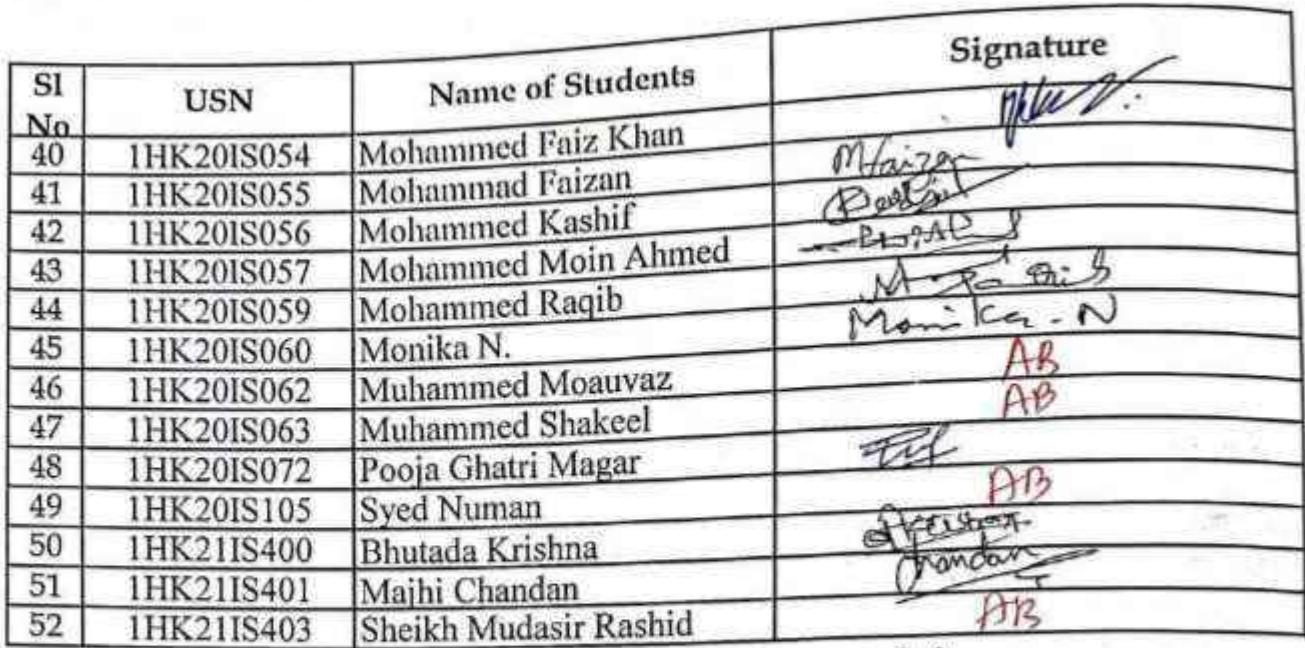 Sl No USN Name of Students Signature
40 1HK20IS054 Mohammed Faiz Khan
41 1HK20IS055 Mohammad Faizan Mfaizan
42 1HK20IS056 Mohammed Kashif
43 1HK20IS057 Mohammed Moin Ahmed
44 1HK20IS059 Mohammed Raqib
45 1HK20IS060 Monika N. Monika - N
46 1HK20IS062 Muhammed Moauvaz AB
47 1HK20IS063 Muhammed Shakeel AB
48 1HK20IS072 Pooja Ghatri Magar
49 1HK20IS105 Syed Numan AB
50 1HK21IS400 Bhutada Krishna
51 1HK21IS401 Majhi Chandan Chandan
52 1HK21IS403 Sheikh Mudasir Rashid AB